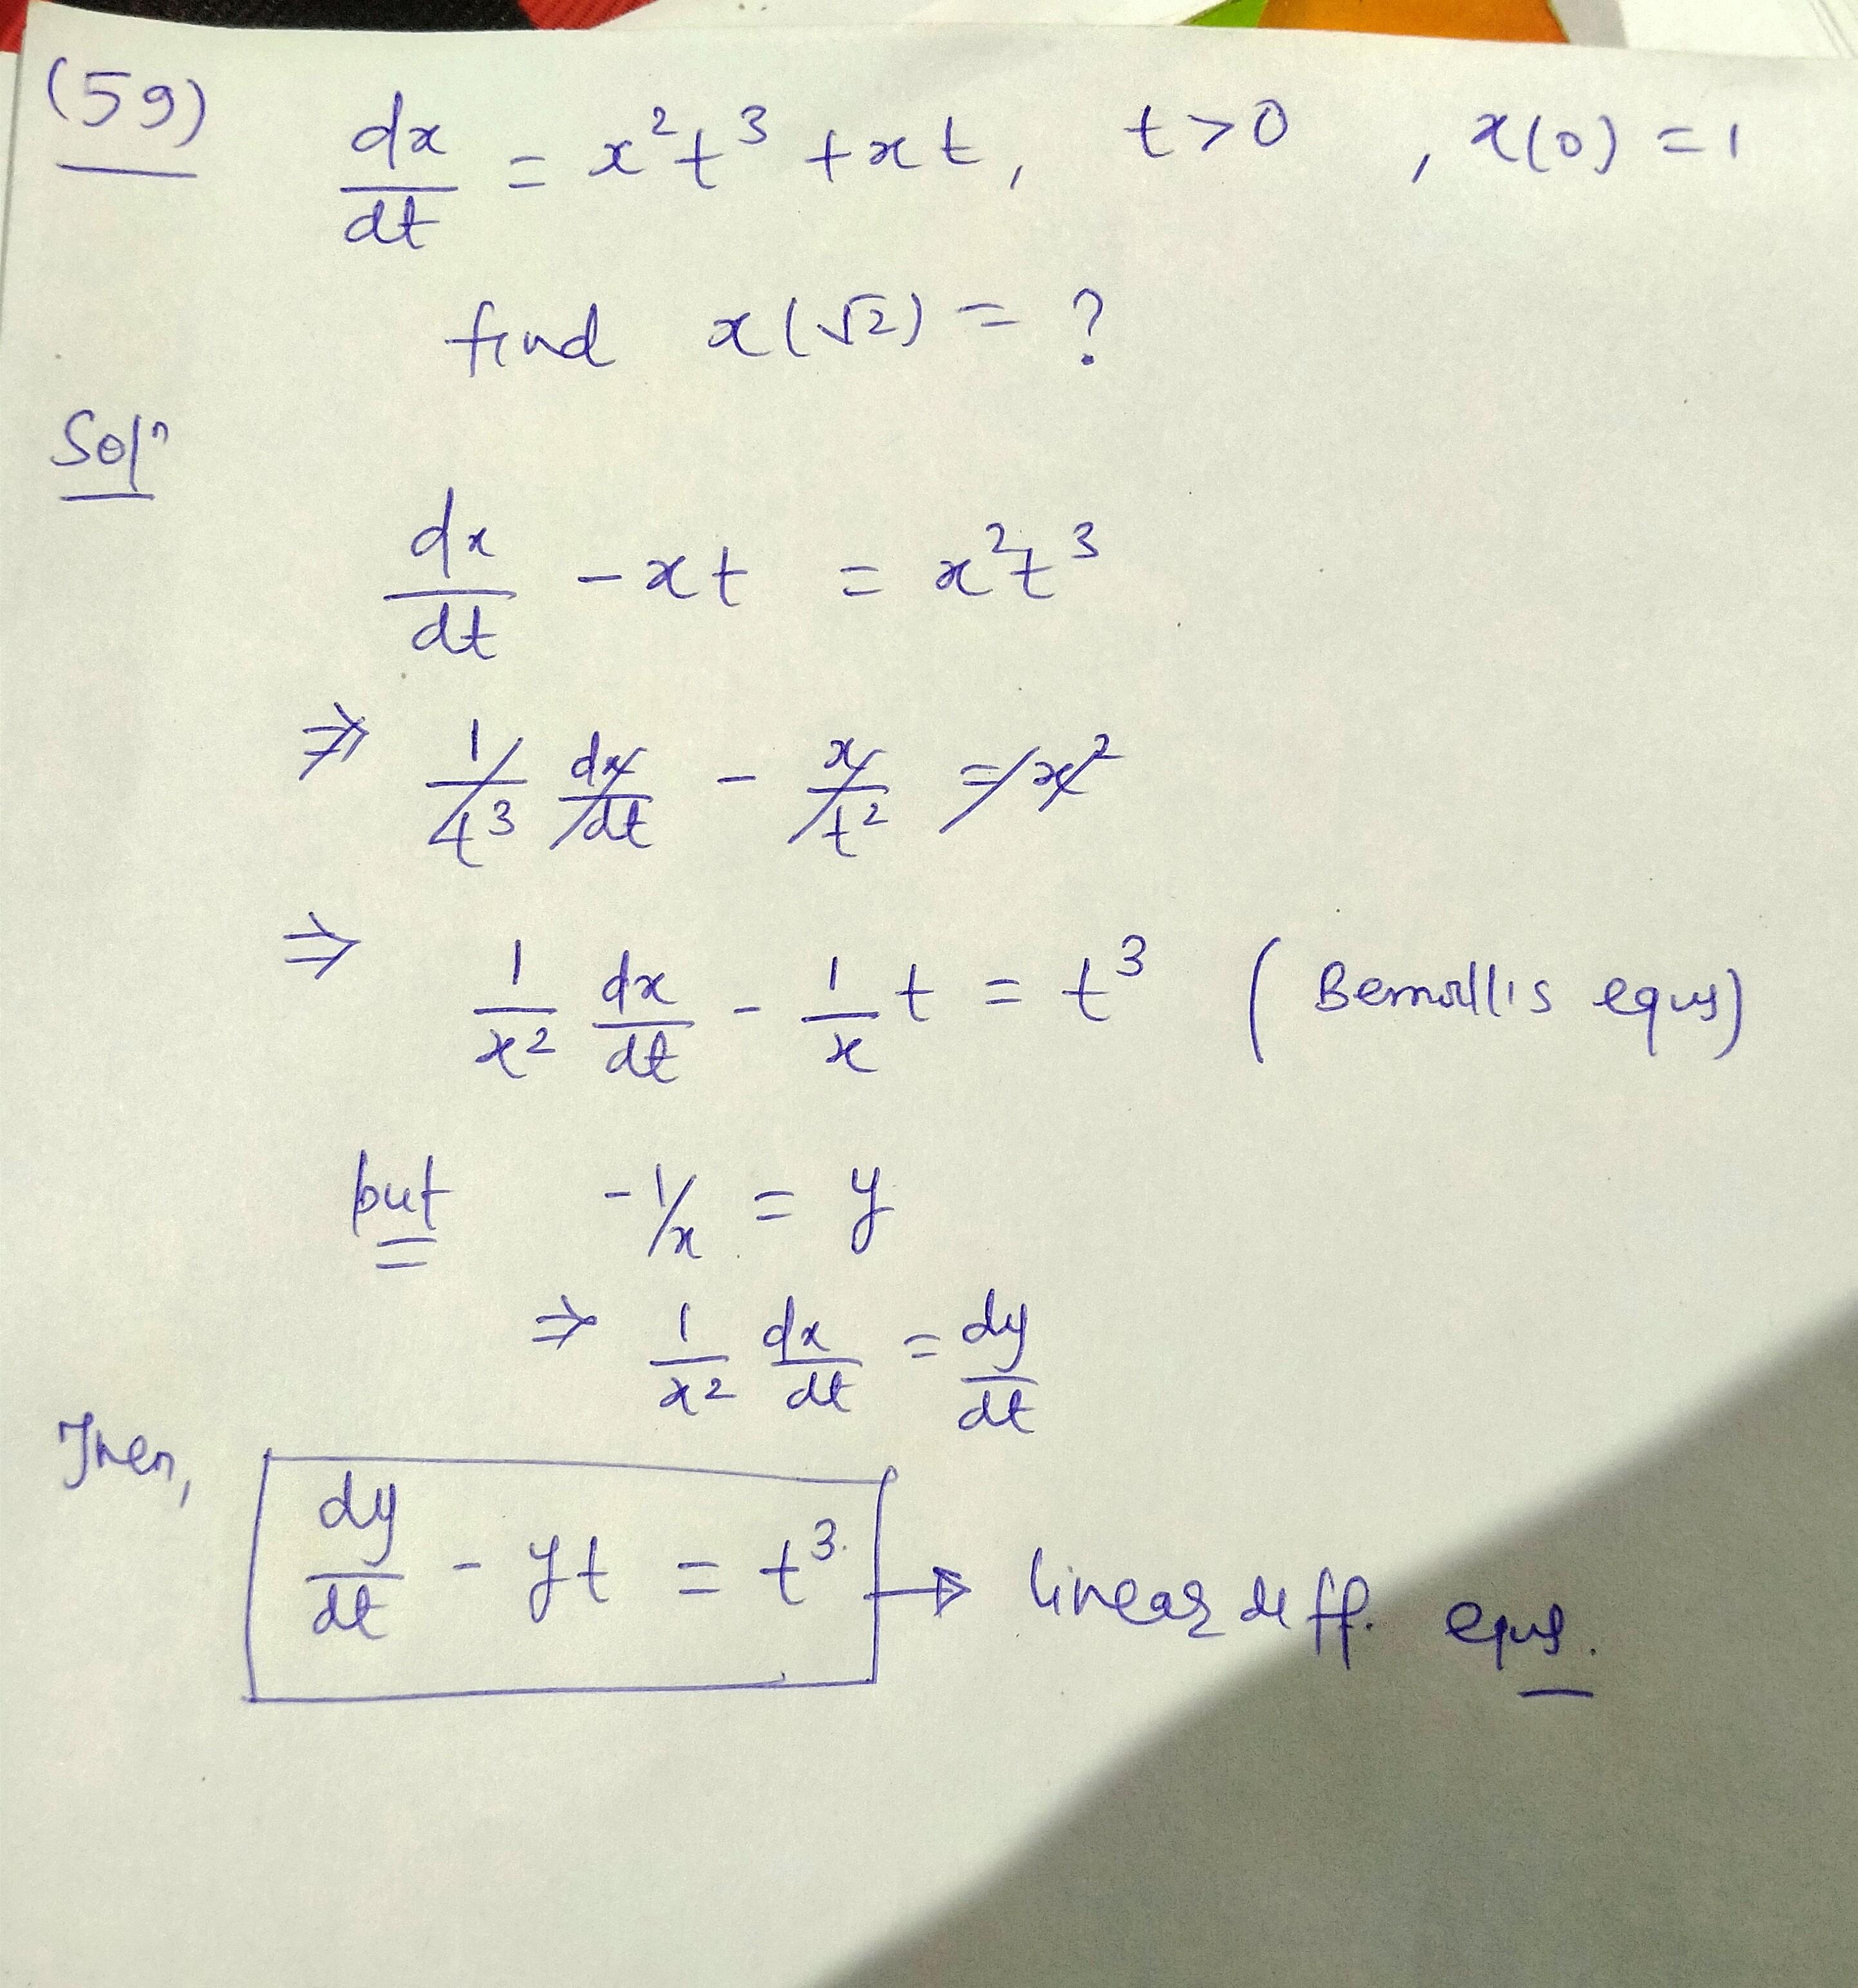 (59) dx/dt = x²t³ + xt, t>0 , x(0) = 1
find x(√2) = ?
Solⁿ
dx/dt - xt = x²t³
⇒ 1/t³ dx/dt - x/t² = x²
⇒ 1/x² dx/dt - 1/x t = t³ (Bernoullis equⁿ)
put -1/x = y
⇒ 1/x² dx/dt = dy/dt
Then,
dy/dt - yt = t³ → linear diff. equⁿ.